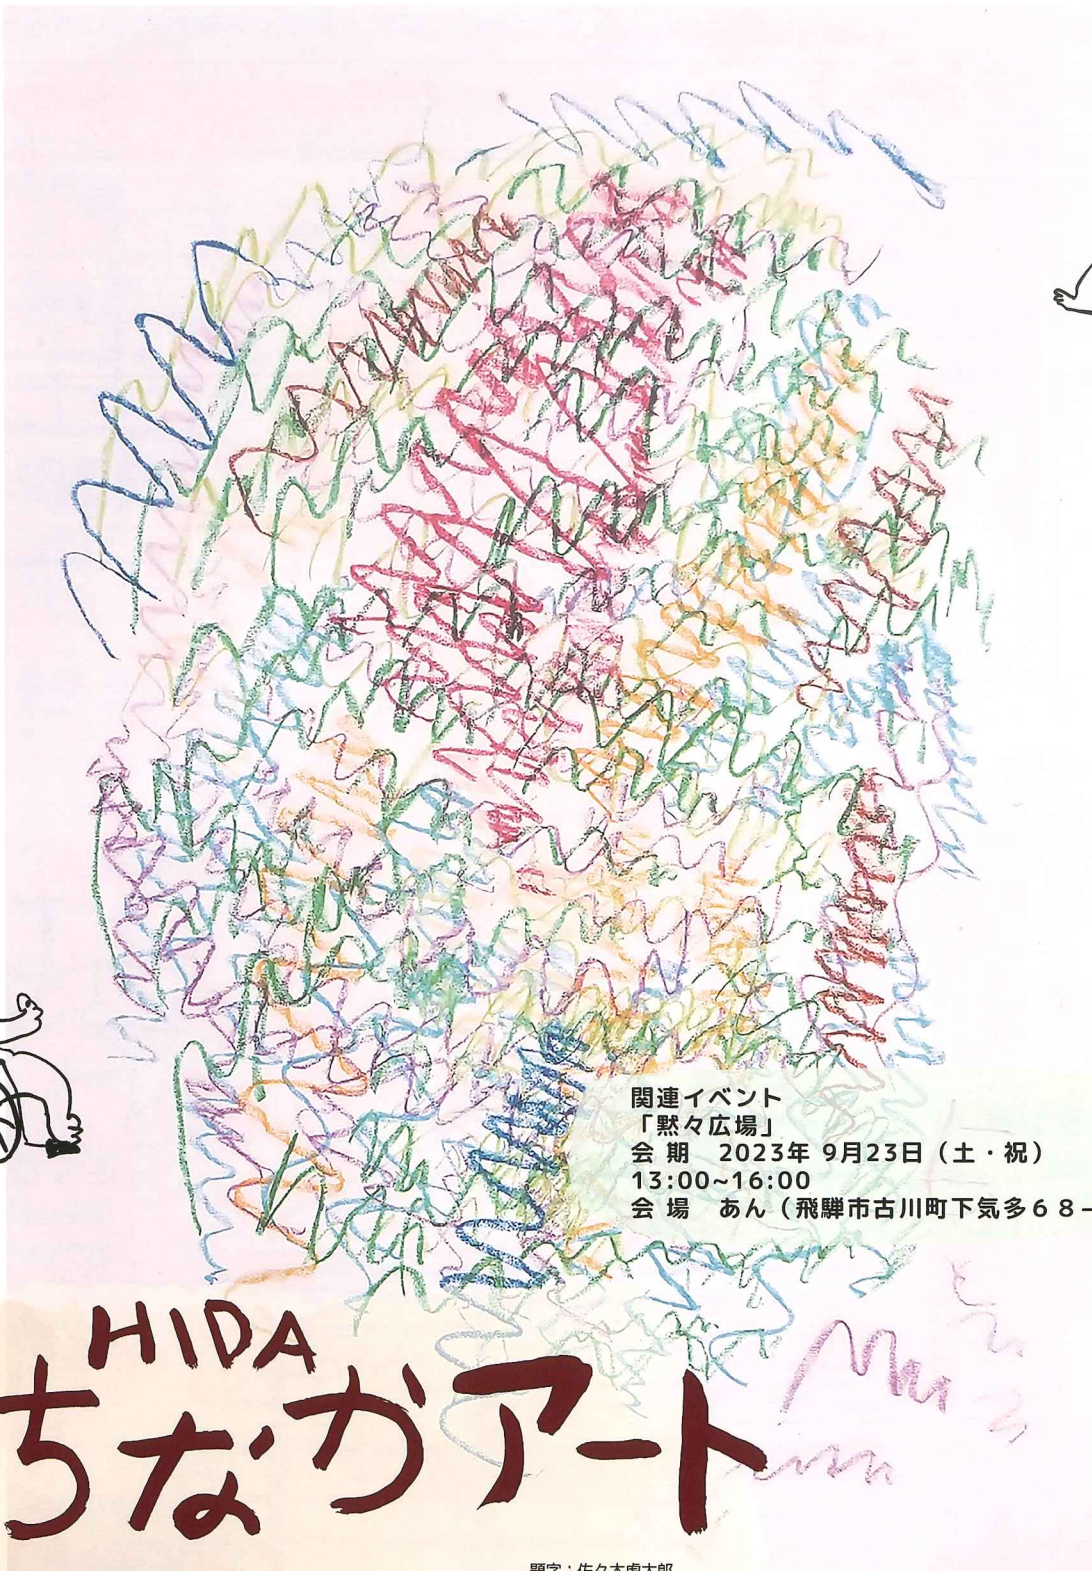 関連イベント
「黙々広場」
会 期　2023年 9月23日（土・祝）
13:00~16:00
会 場　あん（飛騨市古川町下気多６８−
HIDA
ちなかアート
題字：佐々木虎太郎